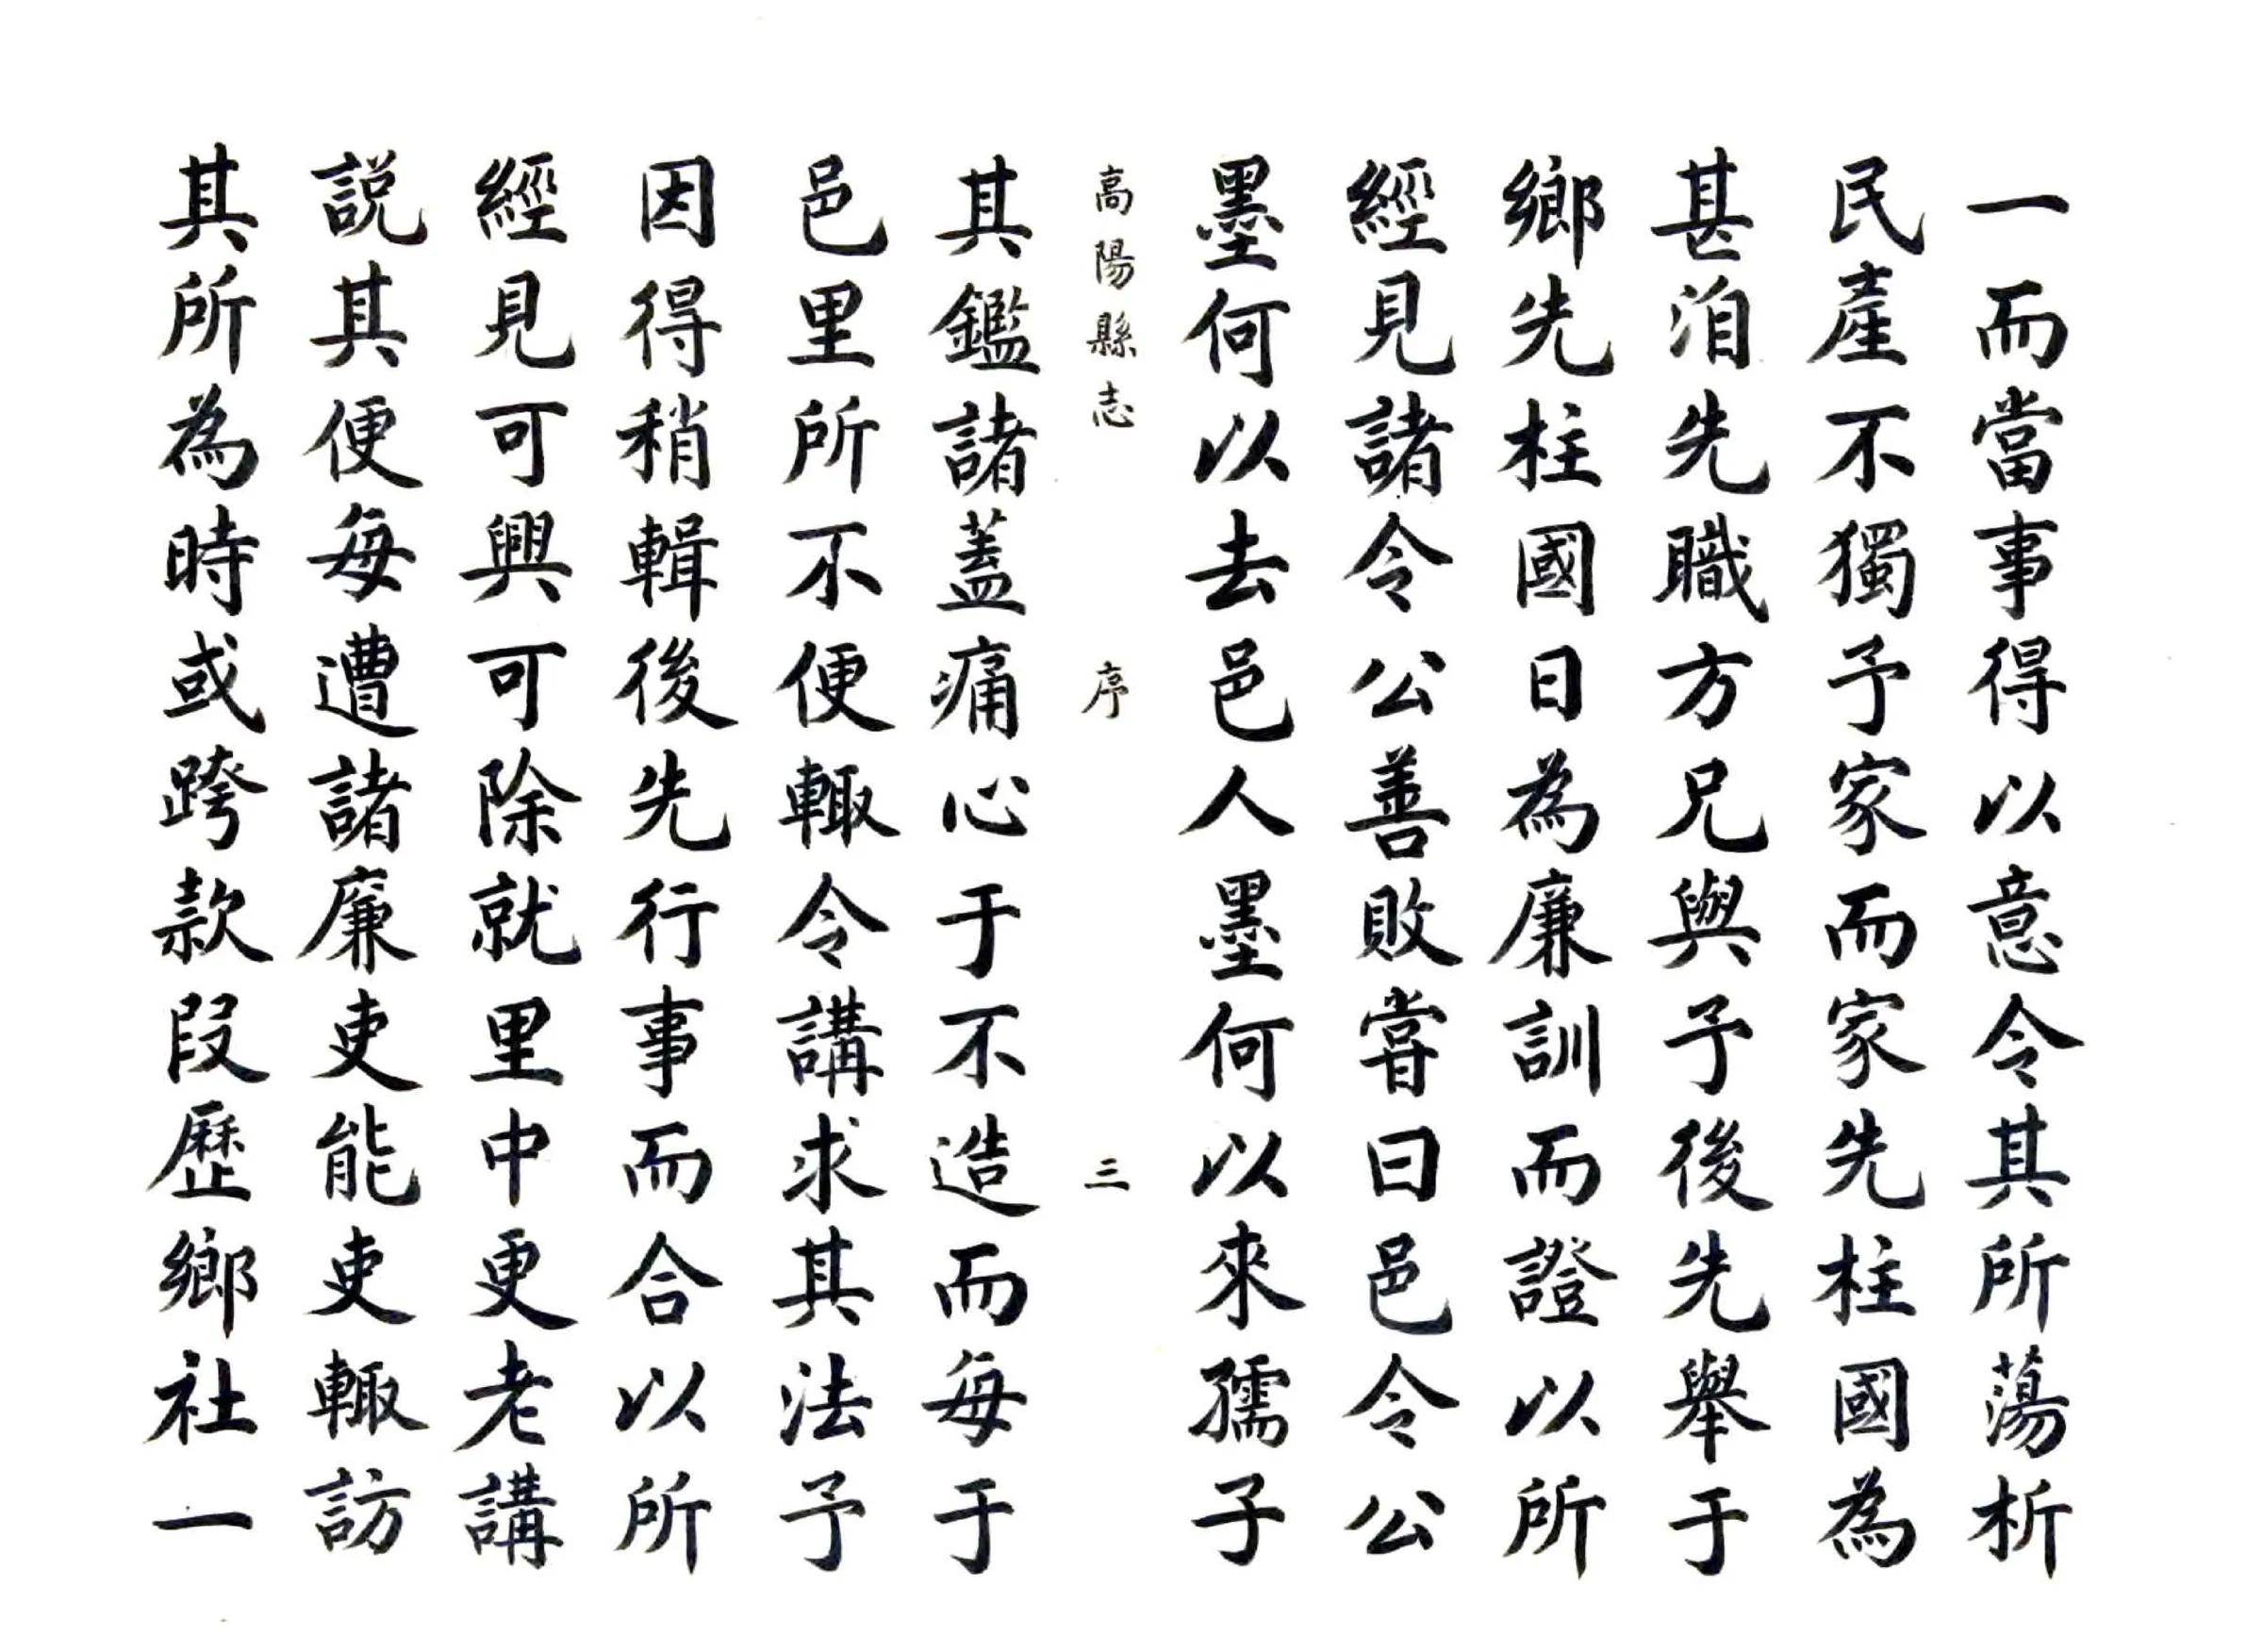 一而當事得以意令其所蕩析
民產不獨予家而家先柱國為
甚洎先職方兄與予後先舉于
鄉先柱國日為廉訓而證以所
經見諸令公善敗嘗曰邑令公
墨何以去邑人墨何以來孺子
高陽縣志 序 三
其鑑諸蓋痛心于不造而每于
邑里所不便輙令講求其法予
因得稍輯後先行事而合以所
經見可興可除就里中更老講
説其便每遭諸廉吏能吏輙訪
其所為時或跨款段歷鄉社一